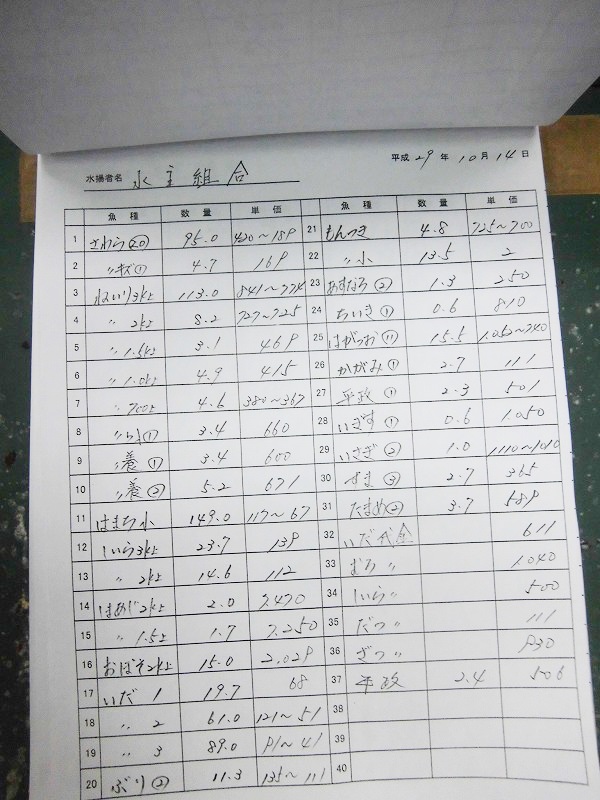 平成 29 年 10 月 14 日
水揚者名 水主組合
魚種 数量 単価
1 さわら⑳ 95.0 420～189
2 〃キズ① 4.7 169
3 ねいり3k上 113.0 841～774
4 〃 2k上 8.2 727～725
5 〃 1.5k上 3.1 469
6 〃 1.0k上 4.9 415
7 〃 700上 4.6 380～367
8 3.4 660
9 〃養① 3.4 600
10 〃養② 5.2 671
11 はまち小 149.0 117～67
12 しいら3k上 23.7 139
13 〃 2k上 14.6 112
14 はあじ2k上 2.0 3,470
15 〃 1.5上 1.7 3,250
16 おぼそ2k上 15.0 2,029
17 いだ 1 19.7 68
18 〃 2 61.0 121～51
19 〃 3 89.0 91～41
20 ぶり② 11.3 135～111
魚種 数量 単価
21 もんつき 4.8 725～700
22 〃小 13.5 2
23 あすなろ② 1.3 250
24 ちいき① 0.6 810
25 はがつお⑪ 15.5 1,052～740
26 かがみ① 2.7 111
27 平政① 2.3 501
28 いぎす① 0.6 1,050
29 いさぎ② 1.0 1110～1010
30 すま③ 2.7 365
31 たまめ② 3.7 589
32 いだ代金 611
33 むろ〃 1,040
34 しいら〃 500
35 だつ〃 111
36 ざつ〃 930
37 平政 2.4 506
38
39
40